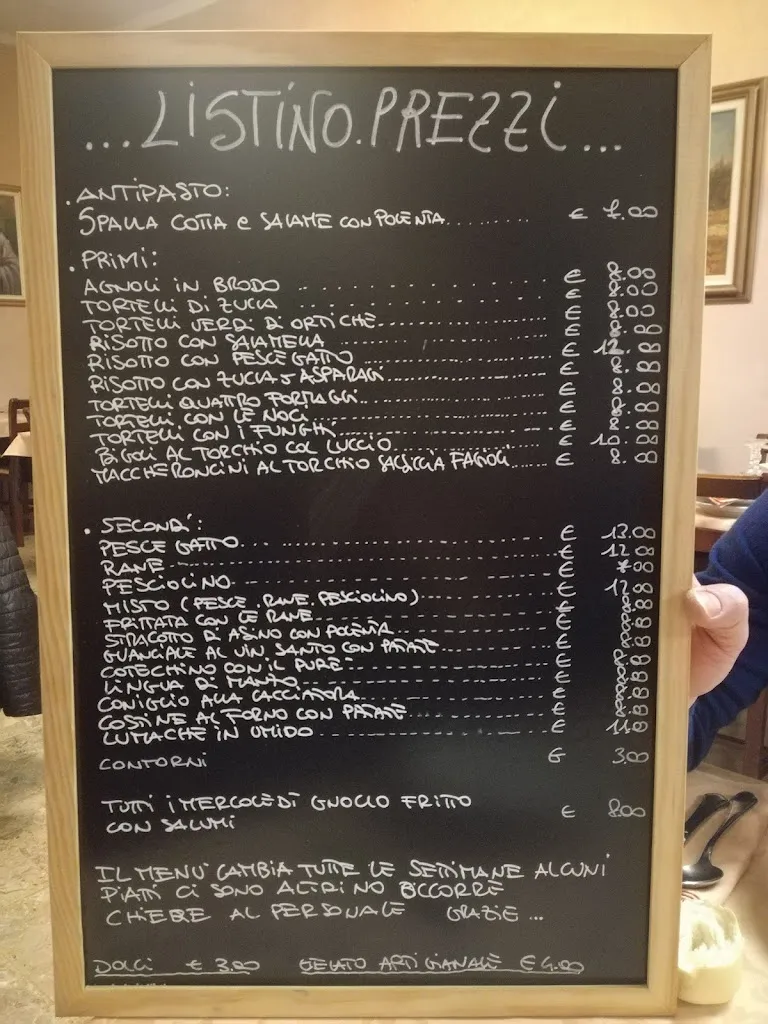 ...LISTINO.PREZZI...
.ANTIPASTO:
SPALLA COTTA e SALAME CON POLENTA........ € 7.00
.PRIMI:
AGNOLI IN BRODO ............ € 8.00
TORTELLI DI ZUCCA ............ € 8.00
TORTELLI VERDI DI ORTICHE............ € 8.00
RISOTTO CON SALAMELLA ............ €
RISOTTO CON PESCE GATTO ............ € 12.00
RISOTTO CON ZUCCA e ASPARAGI............ € 8.00
TORTELLI QUATTRO FORMAGGI............ € 8.00
TORTELLI CON LE NOCI ............ € 8.00
TORTELLI CON I FUNGHI............ € 8.00
BIGOLI AL TORCHIO COL LUCCIO............ € 10.00
MACCHERONCINI AL TORCHIO SALSICCIA FAGIOLI..... € 8.00
.SECONDI:
PESCE GATTO............ € 13.00
RANE............ € 12.00
PESCIOLINO............ €
MISTO (PESCE.RANE.PESCIOLINO)............ € 12.00
FRITTATA CON LE RANE............ €
STRACOTTO DI ASINO CON POLENTA............ €
GUANCIALE AL VIN SANTO CON PATATE............ €
COTECHINO CON IL PURE'............ €
LINGUA DI MANZO............ €
CONIGLIO ALLA CACCIATORA............ €
COSTINE AL FORNO CON PATATE............ €
LUMACHE IN UMIDO............ € 11.00
CONTORNI € 3.00
TUTTI i MERCOLEDI GNOCCO FRITTO
CON SALUMI € 8.00
IL MENU' CAMBIA TUTTE LE SETTIMANE ALCUNI
PIATTI CI SONO ALTRI NO OCCORRE
CHIEDERE AL PERSONALE GRAZIE ...
DOLCI € 3.00 GELATO ARTIGIANALE € 4.00